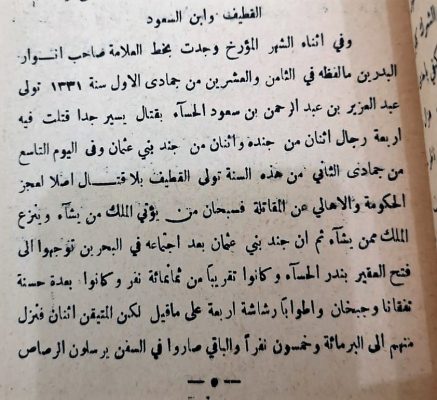 القطيف وابن السعود
وفي اثناء الشهر المؤرخ وجدت بخط العلامة صاحب انوار
البدرين مالفظه في الثامن والعشرين من جمادى الاول سنة ١٣٣١ تولى
عبد العزيز بن عبد الرحمن بن سعود الحسآء بقتال يسير جدا قتلت فيه
اربعة رجال اثنان من جنده واثنان من جند بني عثمان وفي اليوم التاسع
من جمادى الثاني من هذه السنة تولى القطيف بلا قتال اصلا لعجز
الحكومة والاهالي عن المقاتلة فسبحان من يؤتي الملك من يشآء وينزع
الملك ممن يشآء ثم ان جند بني عثمان بعد اجتماعه في البحرين توجهوا الى
فتح العقير بندر الحسآء وكانوا تقريباً من ثمانمائة نفر وكانوا بعدة حسنة
تفقانا وجبخان واطواباً رشاشة اربعة على ماقيل لكن المتيقن اثنان فنزل
منهم الى البر مائة وخمسون نفراً والباقي صاروا في السفن يرسلون الرصاص